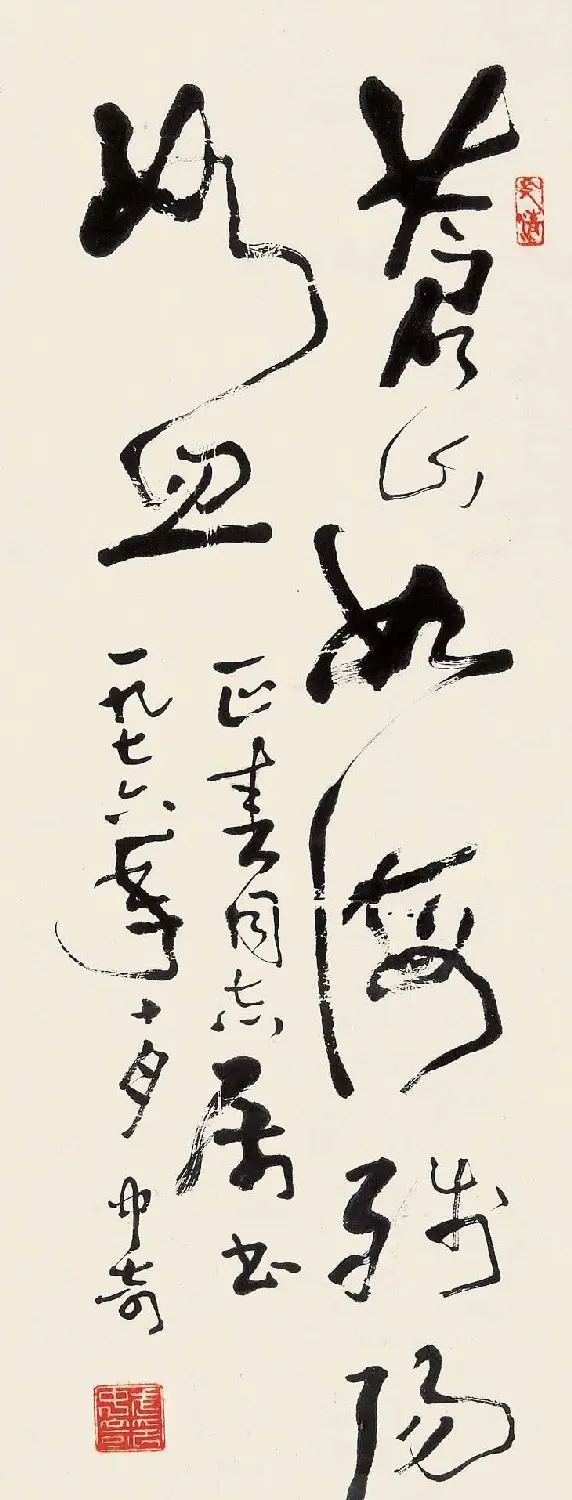 蒼山如海残陽
如血
正春同志属书
一九七六年十月 中奇